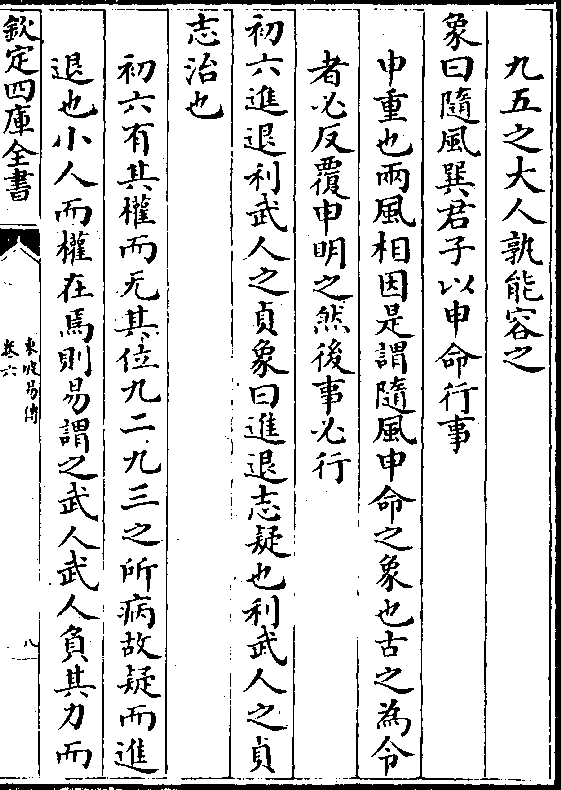 九五之大人孰能容之
象曰隨風巽君子以申命行事
申重也兩風相因是謂隨風申命之象也古之為令
者必反覆申明之然後事必行
初六進退利武人之貞象曰進退志疑也利武人之貞
志治也
初六有其權而无其位九二九三之所病故疑而進
退也小人而權在焉則易謂之武人武人負其力而
欽定四庫全書
東坡易傳
卷六
八